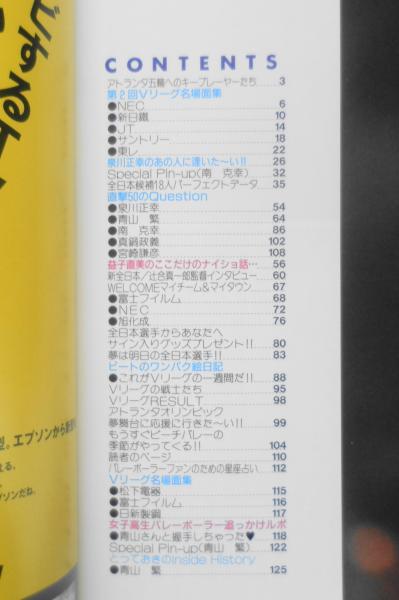 CONTENTS
アトランタ五輪へのキープレーヤーたち 3
第2回Vリーグ名場面集
●NEC 6
●新日鐵 10
●JT 14
●サントリー 18
●東レ 22
泉川正幸のあの人に逢いた〜い!! 26
Special Pin-up(南 克幸) 32
全日本候補18人パーフェクトデータ 35
直撃50のQuestion
●泉川正幸 54
●青山 繁 64
●南 克幸 86
●真鍋政義 102
●宮崎謙彦 108
益子直美のここだけのナイショ話… 56
新全日本/辻合真一郎監督インタビュー 60
WELCOMEマイチーム&マイタウン 67
●富士フイルム 68
●NEC 72
●旭化成 76
全日本選手からあなたへ
サイン入りグッズプレゼント!! 80
夢は明日の全日本選手!! 83
ピートのワンパク絵日記
●これがVリーグの一週間だ!! 88
Vリーグの戦士たち 95
VリーグRESULT 98
アトランタオリンピック
夢舞台に応援に行きた〜い!! 99
もうすぐビーチバレーの
季節がやってくる!! 104
読者のページ 110
バレーボーラーファンのための星座占い 112
Vリーグ名場面集
●松下電器 115
●富士フイルム 116
●日新製鋼 117
女子高生バレーボーラー追っかけルポ
●青山さんと握手しちゃった♥ 118
Special Pin-up(青山 繁) 122
とっておきのInside History
●青山 繁 125
型。エプソンから新登
える。
プソンだね。